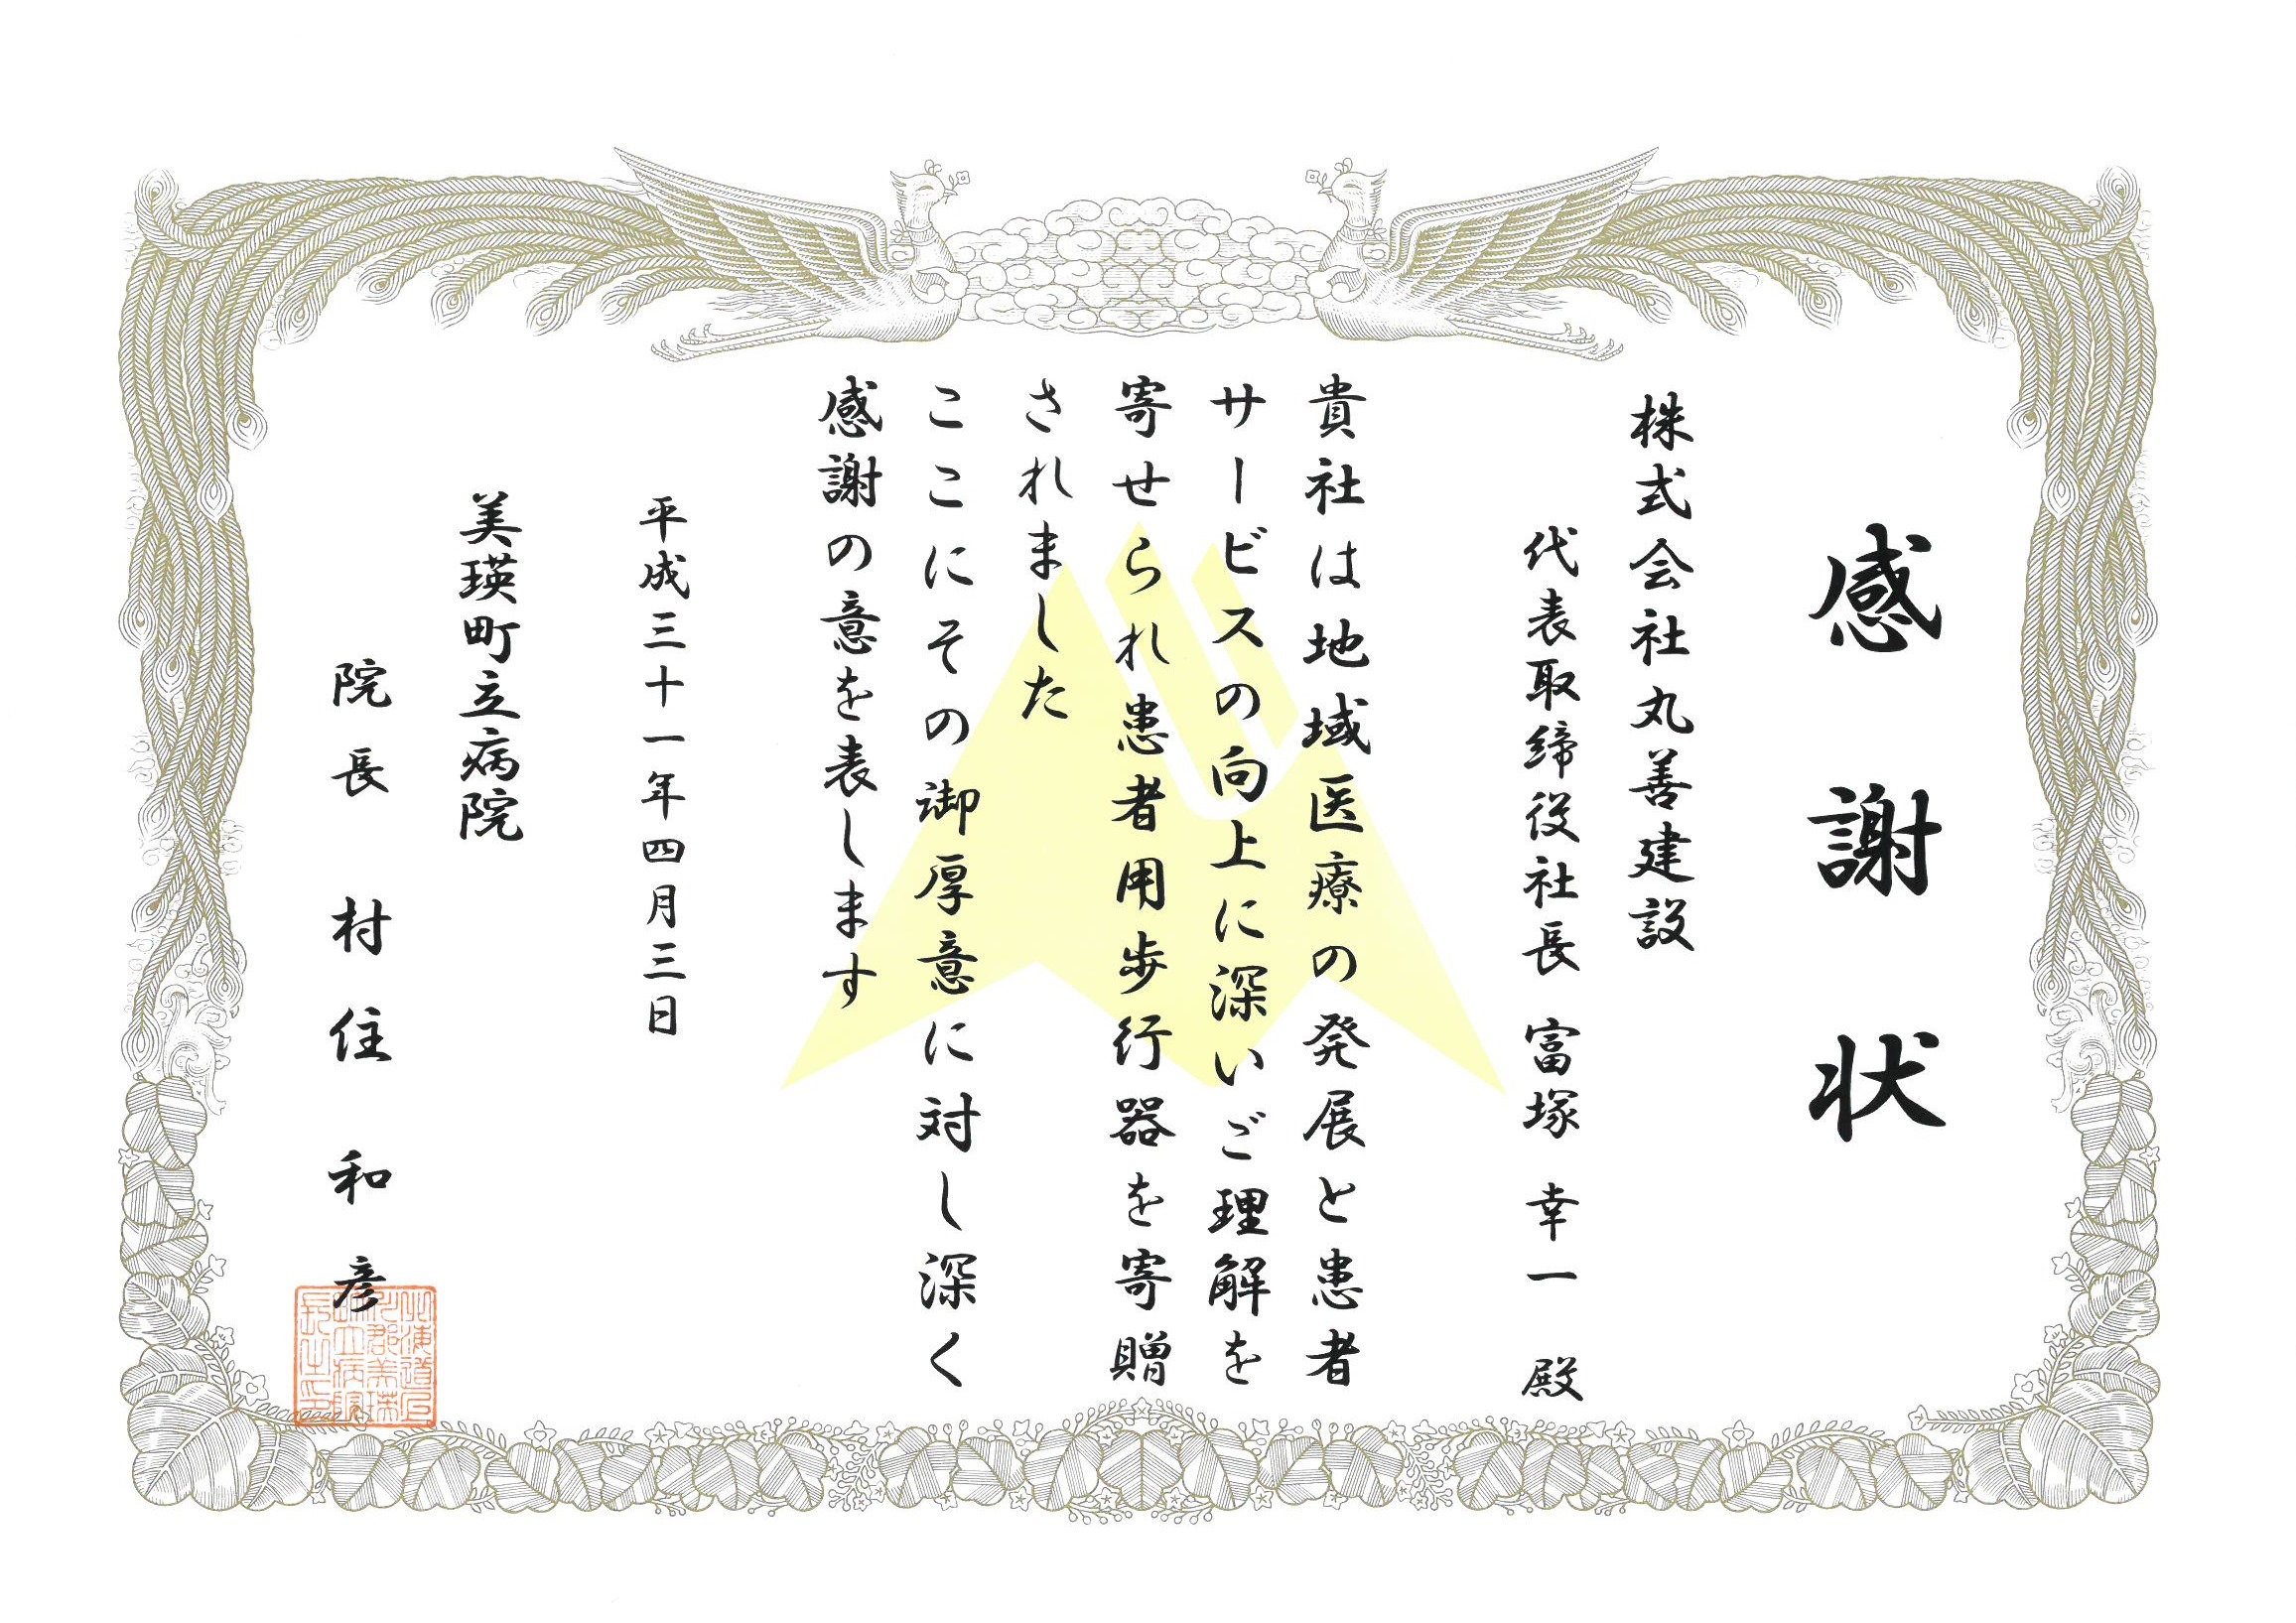 感謝状
株式会社丸善建設
代表取締役社長 富塚 幸一 殿
貴社は地域医療の発展と患者
サービスの向上に深いご理解を
寄せられ患者用歩行器を寄贈
されました
ここにその御厚意に対し深く
感謝の意を表します
平成三十一年四月三日
美瑛町立病院
院長 村住和彦